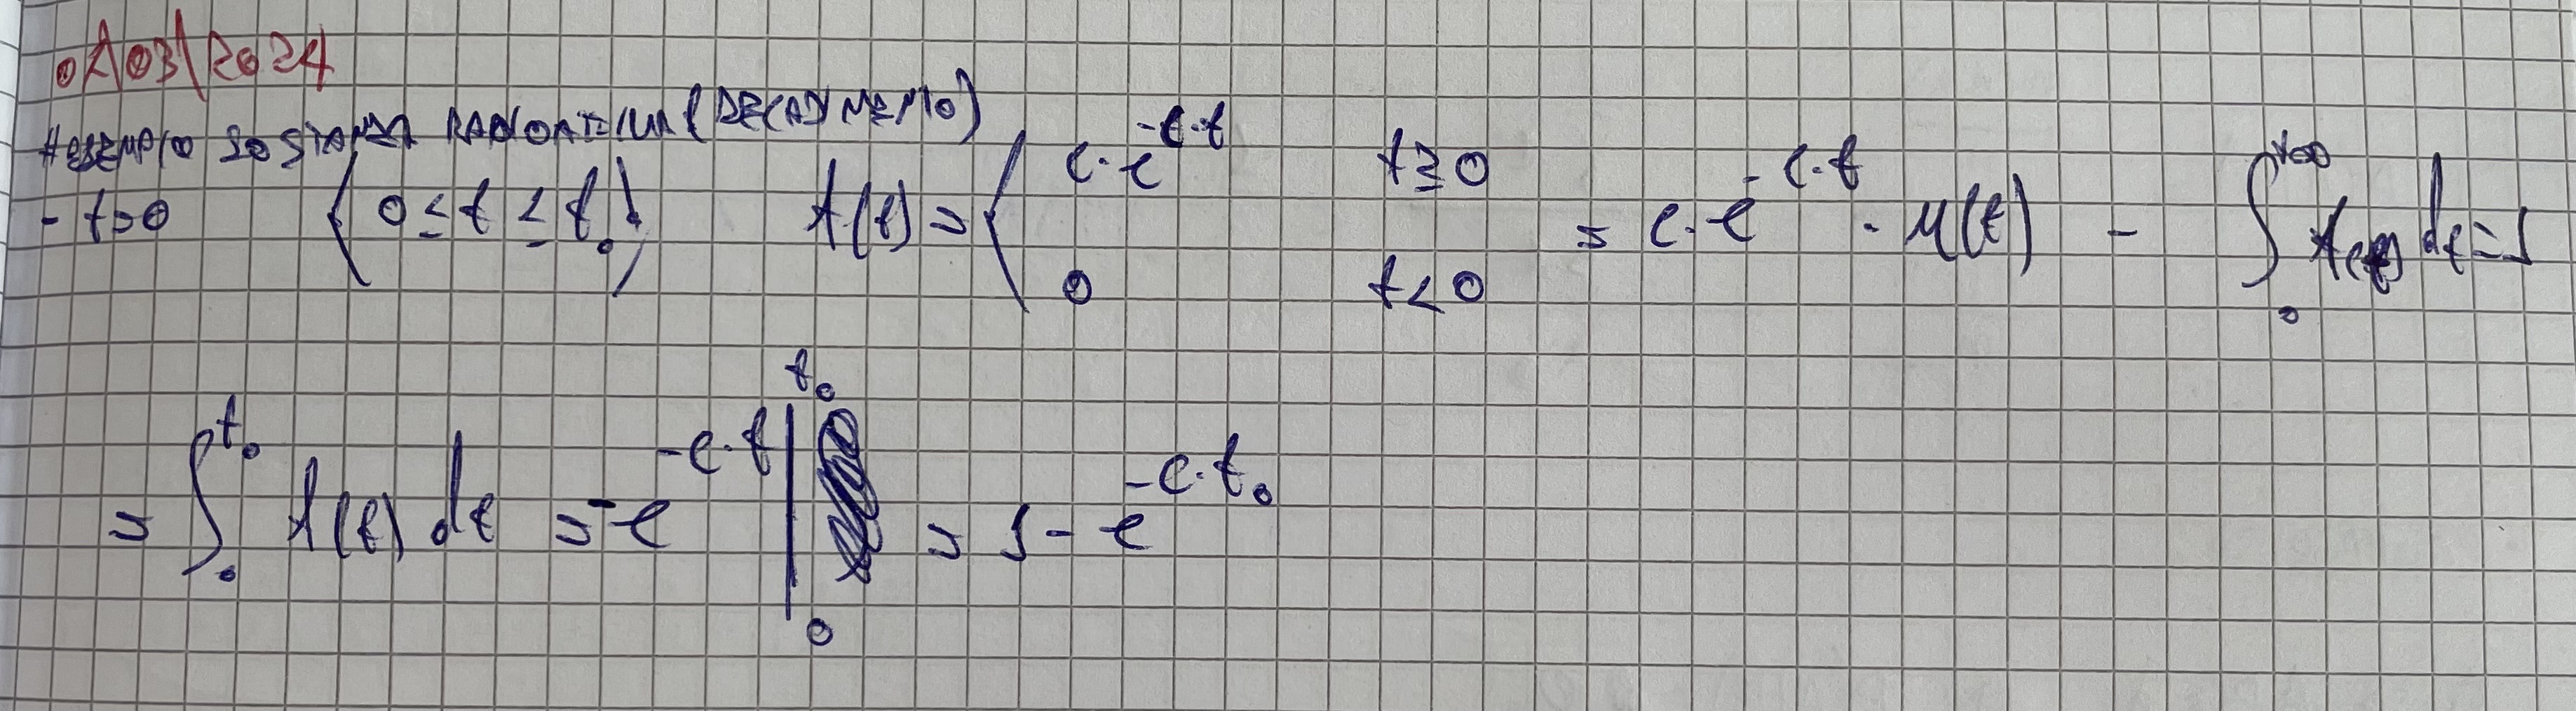 /03/2024
#ESEMPIO SOSTANZA RADIOATTIVA (DECADIMENTO)
- t>0 { 0 ≤ t ≤ t₀ } λ(t) = { c·e^{-c·t} t≥0 ; 0 t<0 = c·e^{-c·t} · u(t) - ∫₀^{+∞} λ(t) dt = 1
= ∫₀^{t₀} λ(t) dt = -e^{-c·t} |₀^{t₀} = 1 - e^{-c·t₀}